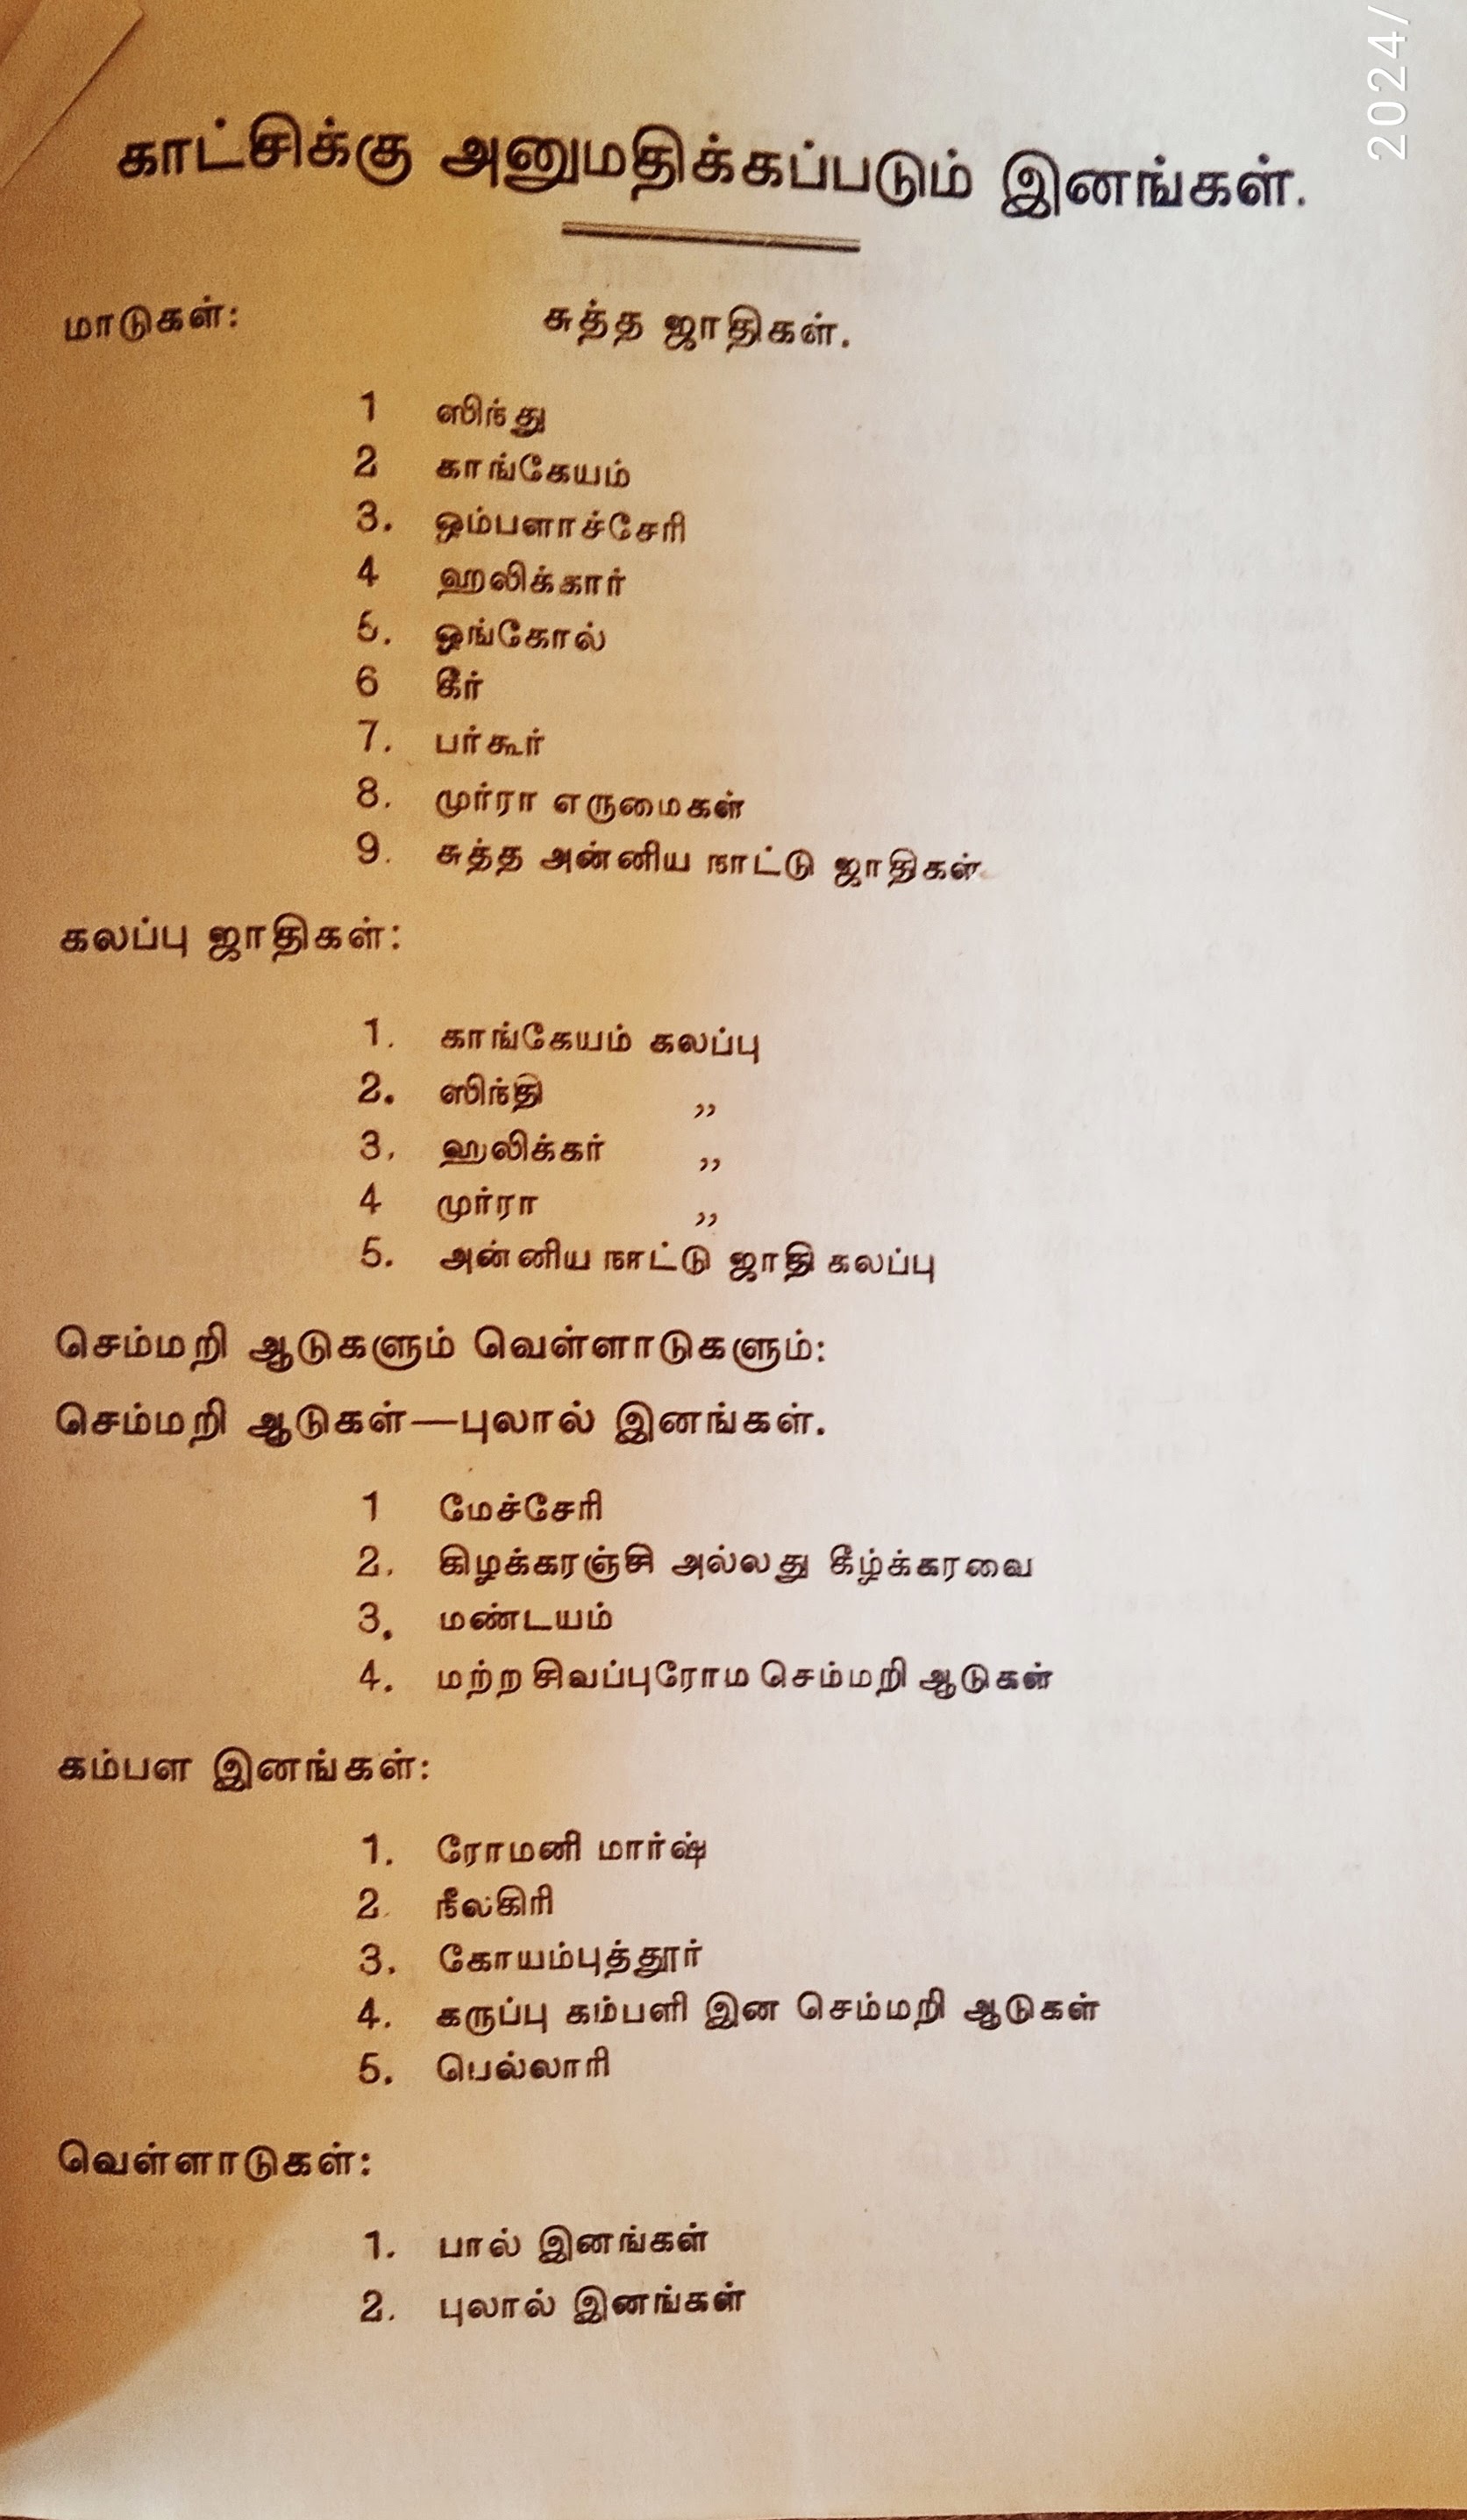 2024/
காட்சிக்கு அனுமதிக்கப்படும் இனங்கள்.
மாடுகள்: சுத்த ஜாதிகள்.
1 ஸிந்து
2 காங்கேயம்
3. ஒம்பளாச்சேரி
4 ஹலிக்கார்
5. ஒங்கோல்
6 கீர்
7. பர்கூர்
8. முர்ரா எருமைகள்
9. சுத்த அன்னிய நாட்டு ஜாதிகள்
கலப்பு ஜாதிகள்:
1. காங்கேயம் கலப்பு
2. ஸிந்தி ,,
3. ஹலிக்கர் ,,
4 முர்ரா ,,
5. அன்னிய நாட்டு ஜாதி கலப்பு
செம்மறி ஆடுகளும் வெள்ளாடுகளும்:
செம்மறி ஆடுகள்—புலால் இனங்கள்.
1 மேச்சேரி
2. கிழக்கரஞ்சி அல்லது கீழ்க்கரவை
3. மண்டயம்
4. மற்ற சிவப்புரோம செம்மறி ஆடுகள்
கம்பள இனங்கள்:
1. ரோமனி மார்ஷ்
2. நீலகிரி
3. கோயம்புத்தூர்
4. கருப்பு கம்பளி இன செம்மறி ஆடுகள்
5. பெல்லாரி
வெள்ளாடுகள்:
1. பால் இனங்கள்
2. புலால் இனங்கள்